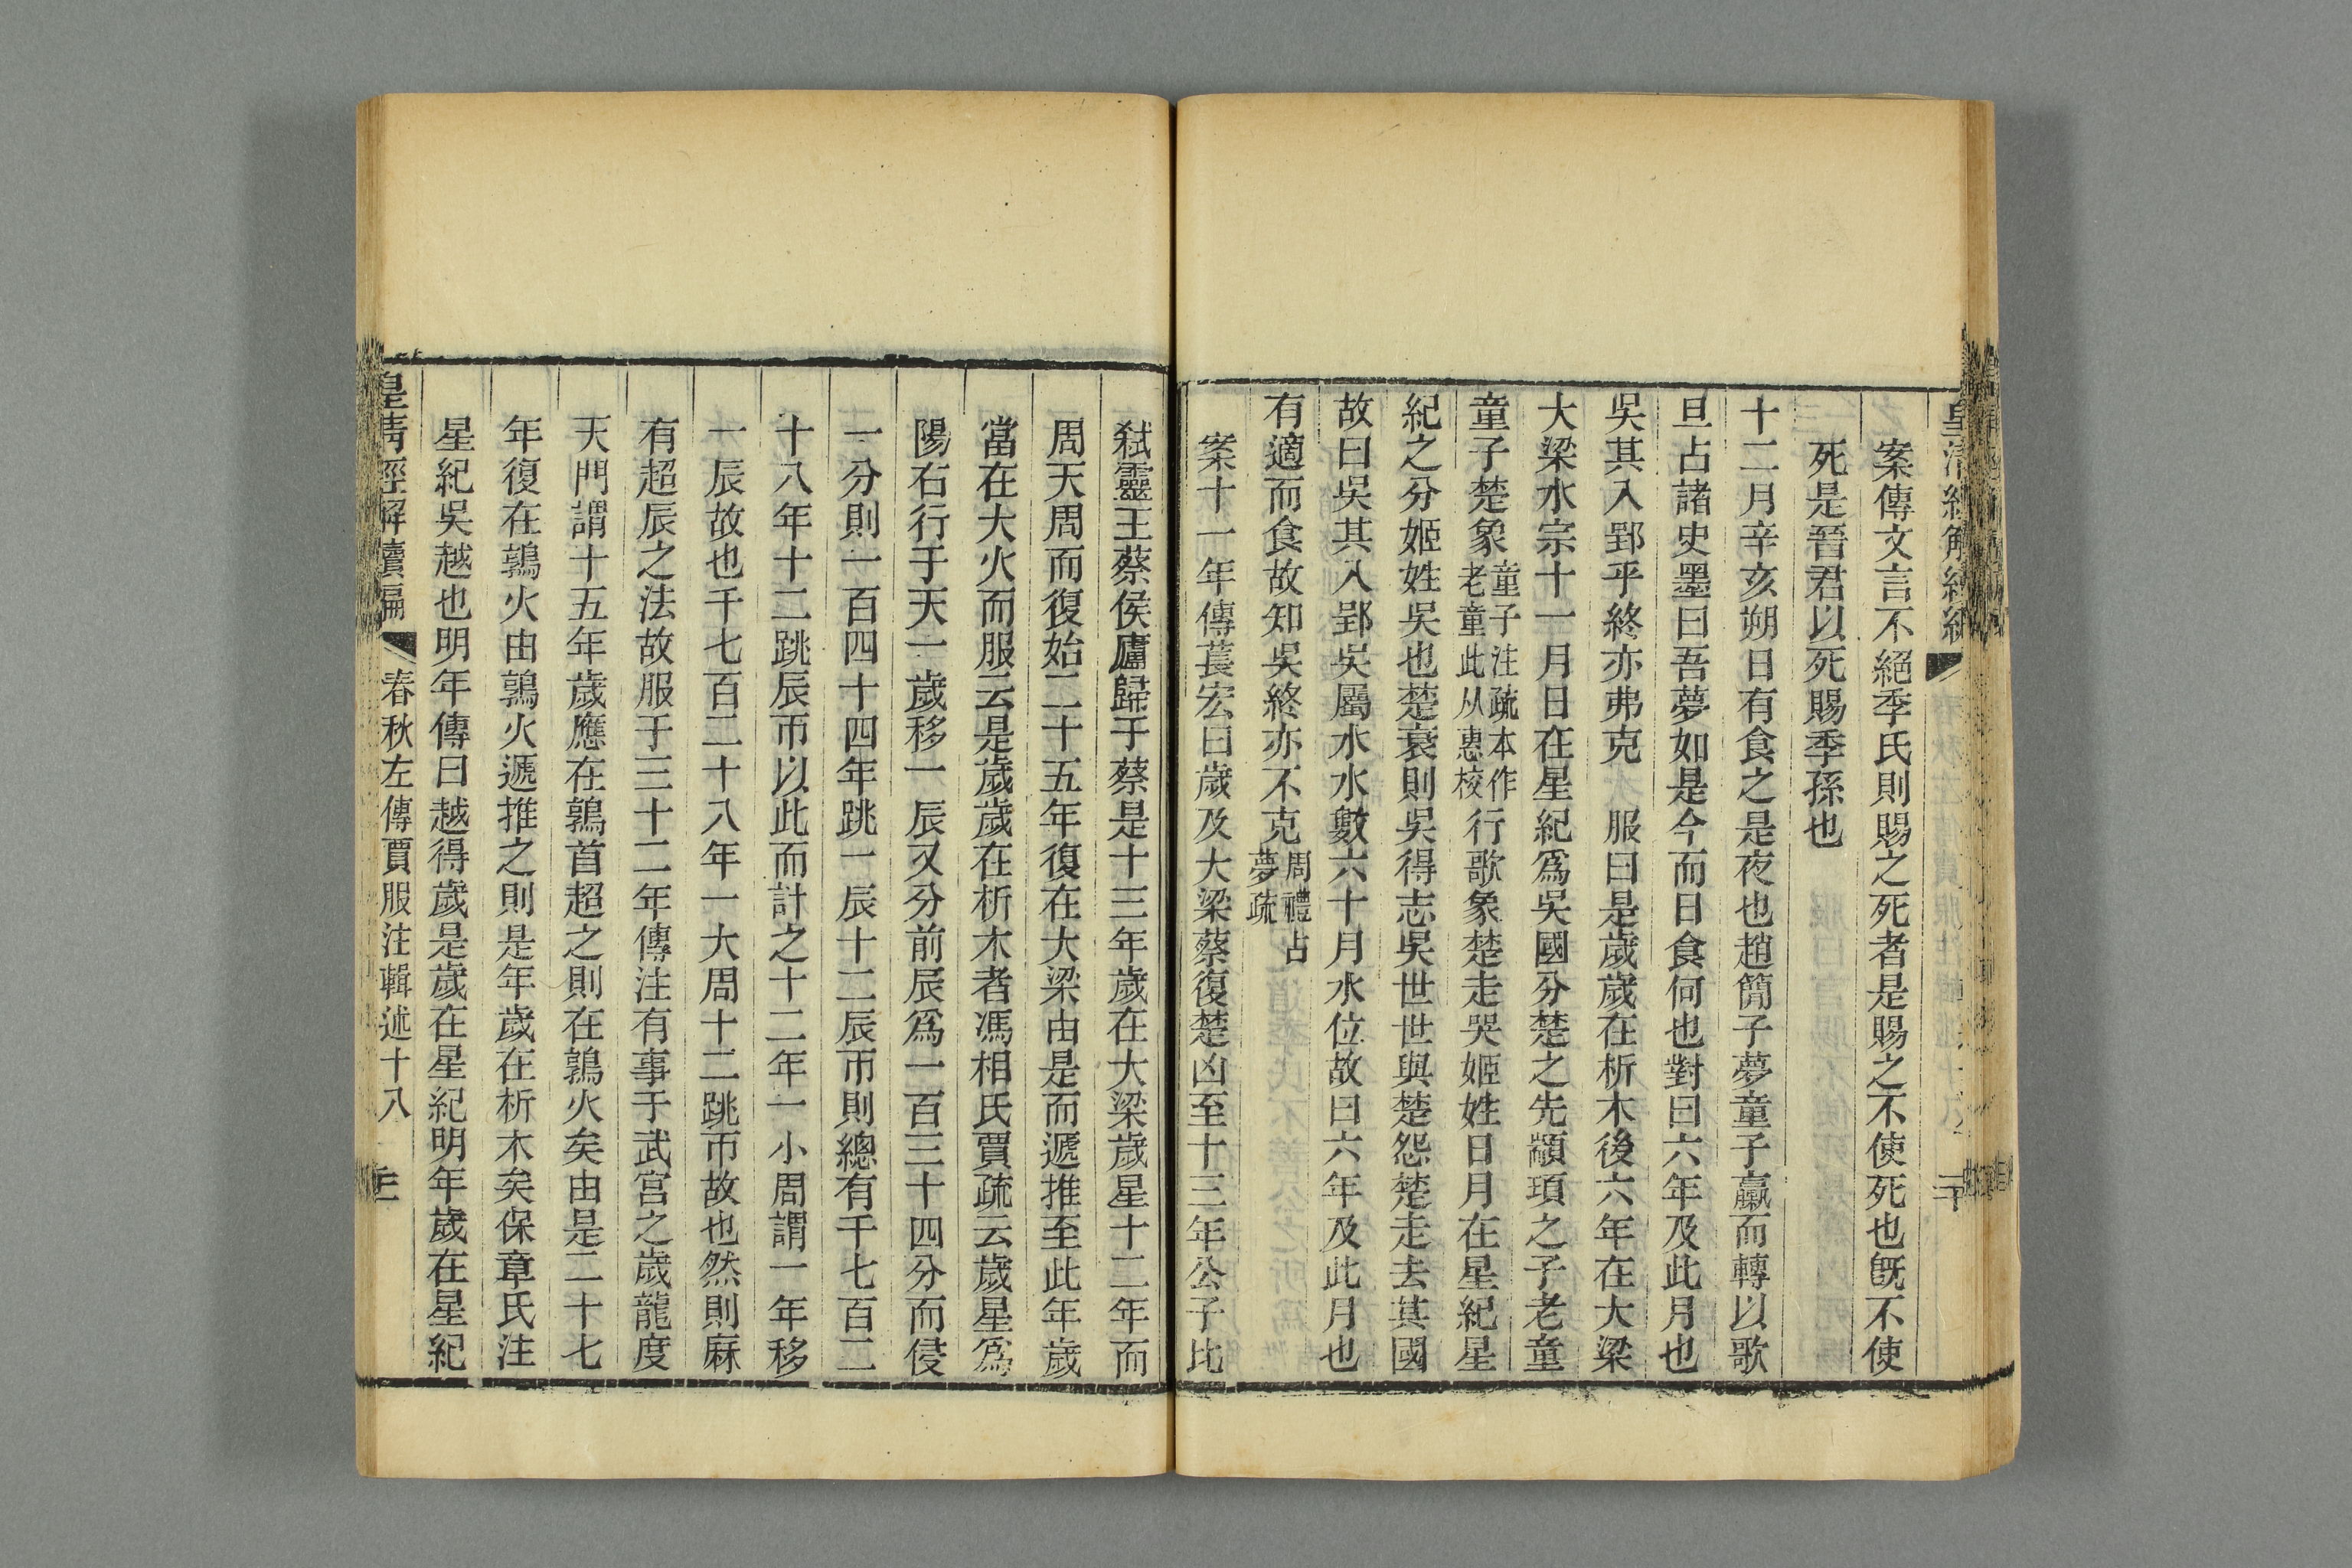 皇清經解續編
二十
案傳文言不絕季氏則賜之死者是賜之不使死也旣不使
死是晉君以死賜季孫也
十二月辛亥朔日有食之是夜也趙簡子夢童子羸而轉以歌
旦占諸史墨曰吾夢如是今而日食何也對曰六年及此月也
吳其入郢乎終亦弗克　服曰是歲歲在析木後六年在大梁
大梁水宗十一月日在星紀爲吳國分楚之先顓頊之子老童
童子楚象童子注疏本作老童此从惠校行歌象楚走哭姬姓日月在星紀星
紀之分姬姓吳也楚衰則吳得志吳世世與楚怨楚走去其國
故曰吳其入郢吳屬水水數六十月水位故曰六年及此月也
有適而食故知吳終亦不克周禮占夢疏
案十一年傳萇宏曰歲及大梁蔡復楚凶至十三年公子比
弒靈王蔡侯廬歸于蔡是十三年歲在大梁歲星十二年而
周天周而復始二十五年復在大梁由是而遞推至此年歲
當在大火而服云是歲歲在析木者馮相氏賈疏云歲星爲
陽右行于天一歲移一辰又分前辰爲一百三十四分而侵
一分則一百四十四年跳一辰十二辰帀則總有千七百二
十八年十二跳辰帀以此而計之十二年一小周謂一年移
一辰故也千七百二十八年一大周十二跳帀故也然則麻
有超辰之法故服于三十二年傳注有事于武宮之歲龍度
天門謂十五年歲應在鶉首超之則在鶉火矣由是二十七
年復在鶉火由鶉火遞推之則是年歲在析木矣保章氏注
星紀吳越也明年傳曰越得歲是歲在星紀明年歲在星紀
皇清經解續編
春秋左傳賈服注輯述十八